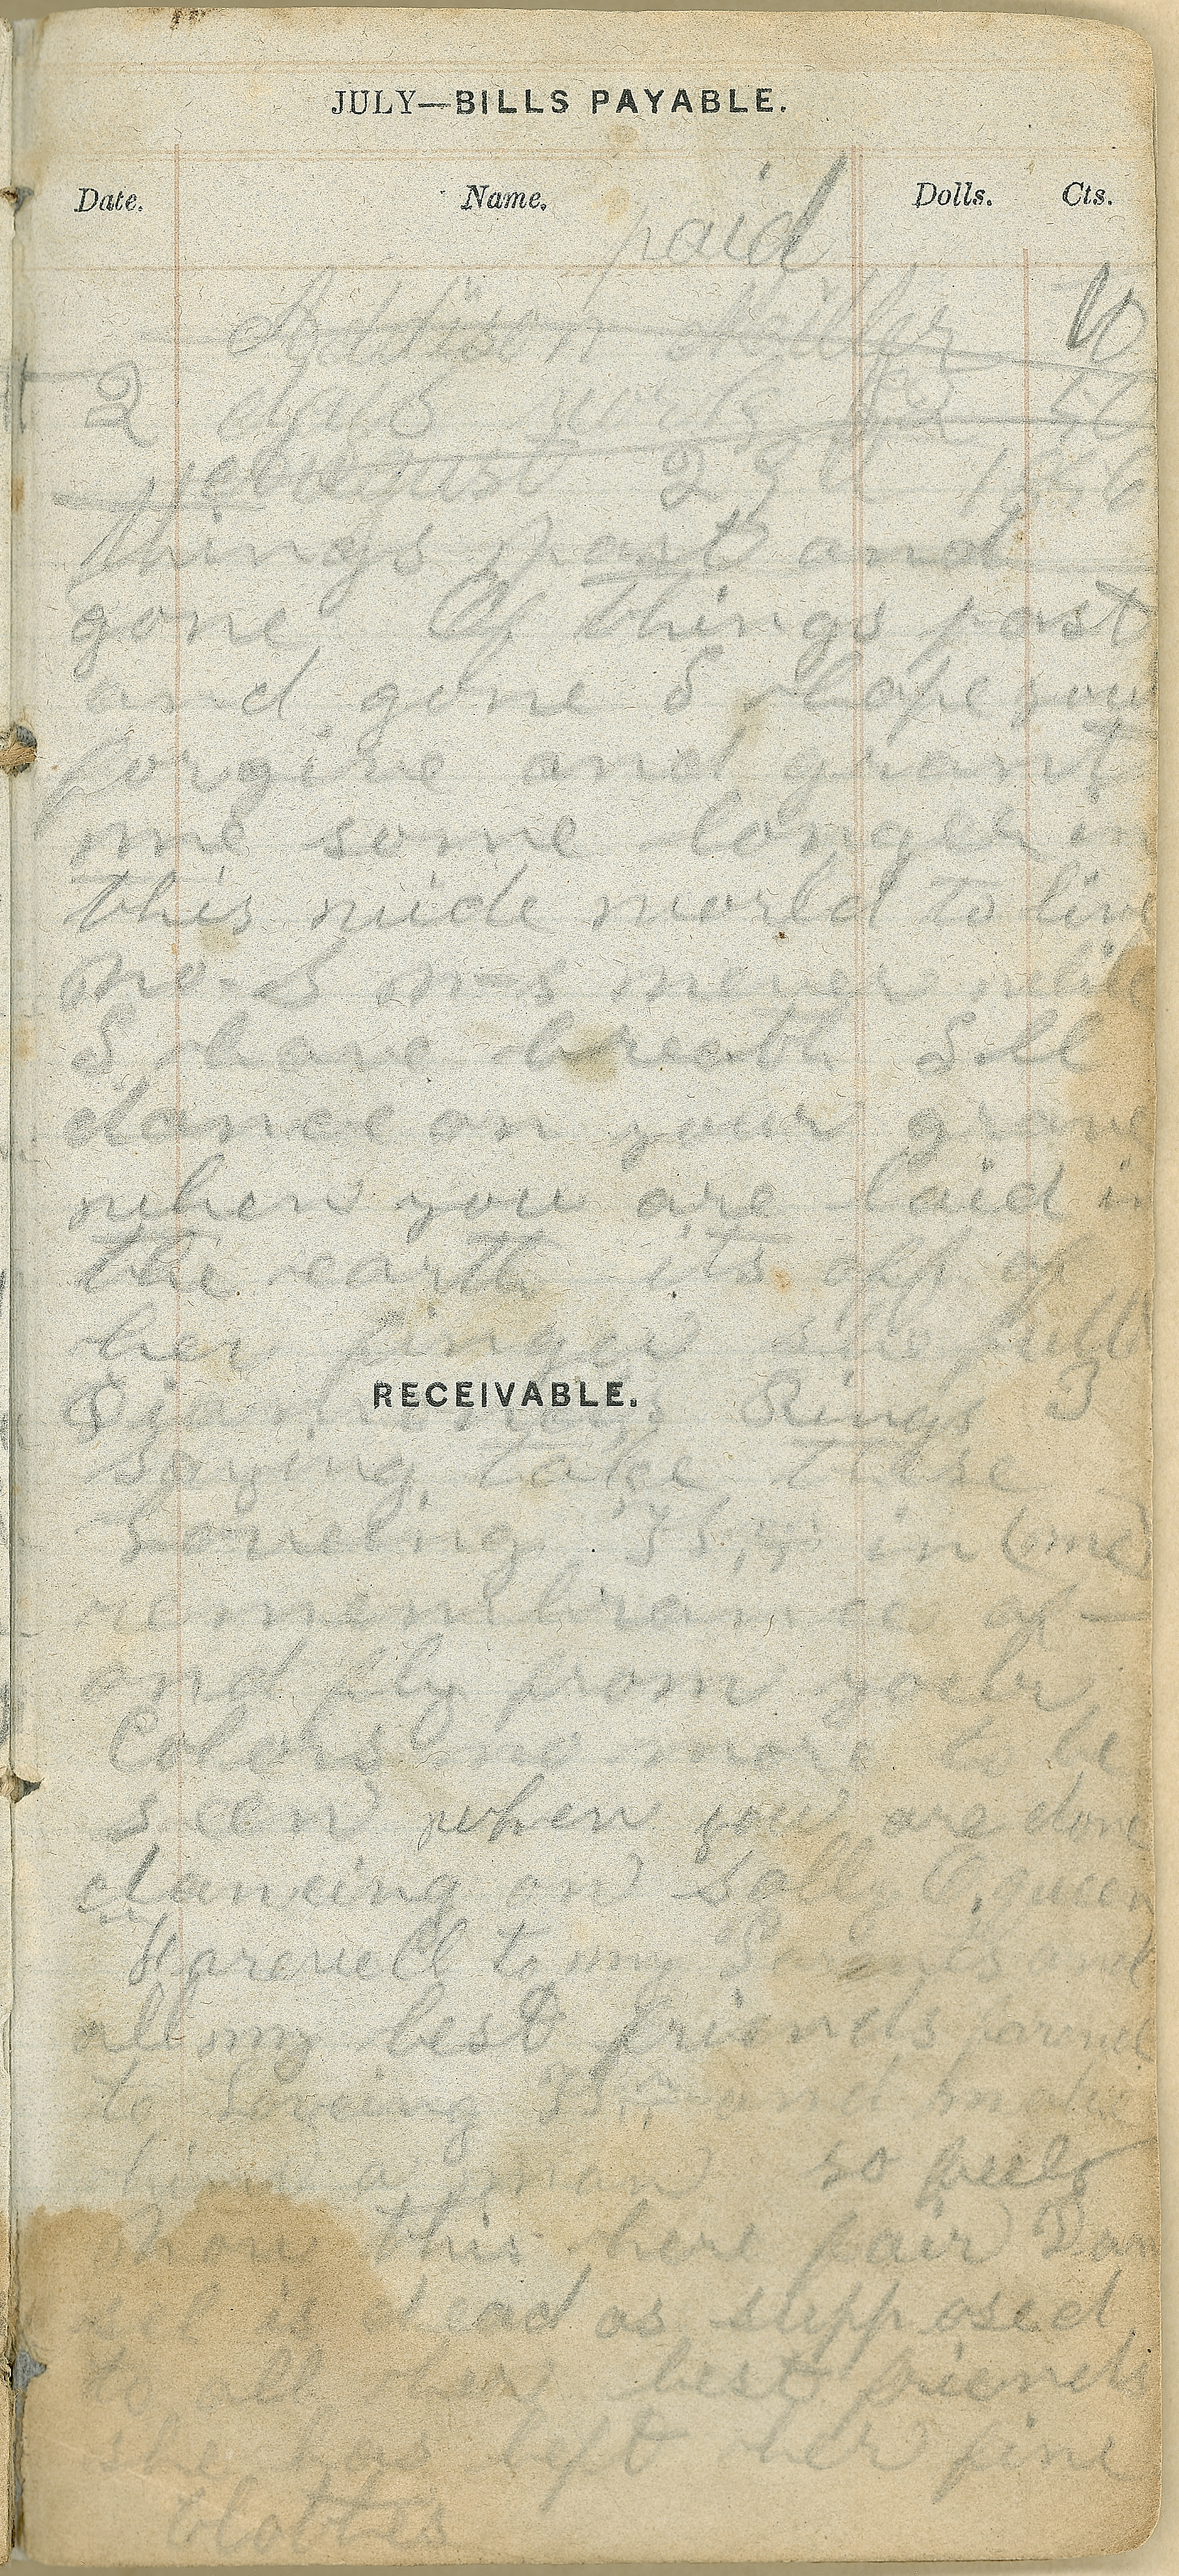 JULY—BILLS PAYABLE.
Date. Name. Dolls. Cts.
paid
Addison 10
2 days work $2 50
august 29th
things past and
gone Of things past
and gone I hope you
forgive and grant
me some longer in
this wide world to live
no I never while
I have breath Ill
dance on your grave
when you are laid in
the earth its off of
her finger she pulld
Rings 3
RECEIVABLE.
saying take these
in (me)
remembrance of —
and fly from your
Colors no more to be
seen when you are done
dancing on Sally queen
Farewell to my and
all my best friends farewell
to and
a man so feels
Now this here fair Dam
sel is dead as supposed
to all her best friends
she has left her fine
clothes